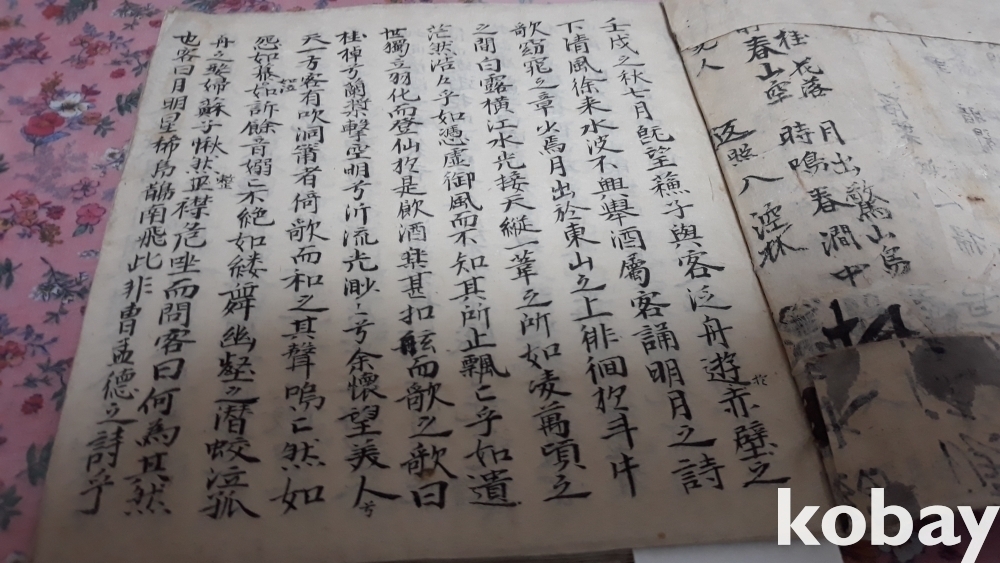 月出驚山鳥
時鳴春澗中
桂花落
春山空
返照入
壬戌之秋七月旣望穌子與客泛舟遊於赤壁之
下清風徐来水波不興舉酒屬客誦明月之詩
歌窈窕之章少焉月出於東山之上徘徊於斗牛
之間白露橫江水光接天縱一葦之所如凌萬頃之
茫然浩々乎如憑虛御風而不知其所止飄々乎如遺
世獨立羽化而登仙於是飮酒樂甚扣舷而歌之歌曰
桂棹兮蘭槳擊空明兮泝流光渺々兮余懷望美人兮
天一方客有吹洞簫者倚歌而和之其聲嗚々然如
怨如慕如泣如訴餘音嫋々不絶如縷舞幽壑之潛蛟泣孤
舟之嫠婦蘇子愀然整正襟危坐而問客曰何為其然
也客曰月明星稀烏鵲南飛此非曹孟德之詩乎
kobay